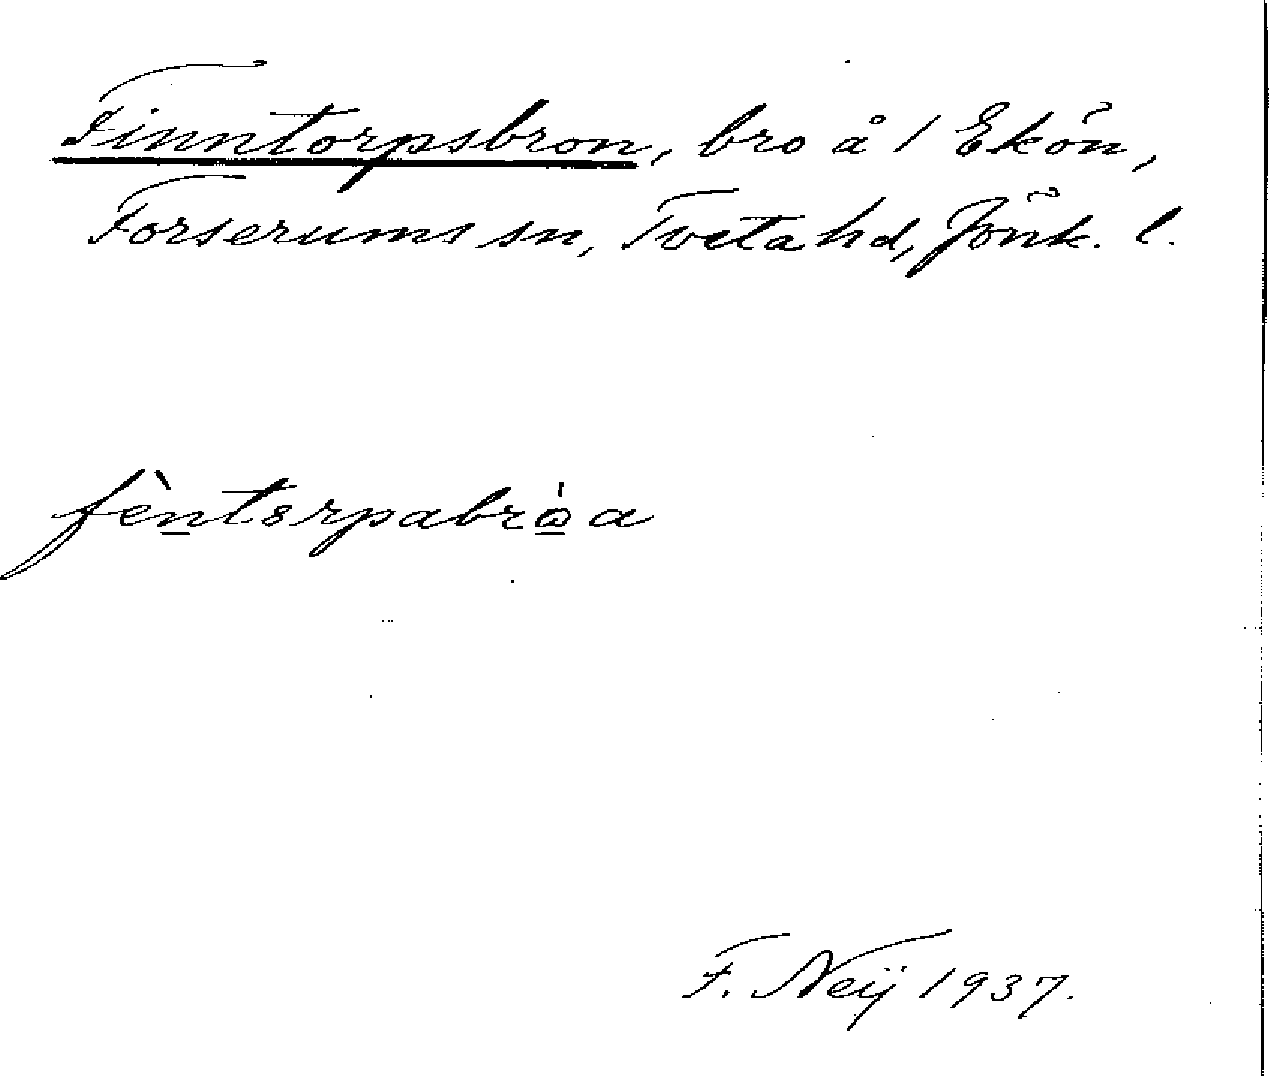 Finntorpsbron, bro å 1 Ekön,
Forserums sn, Tveta hd, Jönk. l.
fèntorpabròa
F. Neij 1937.